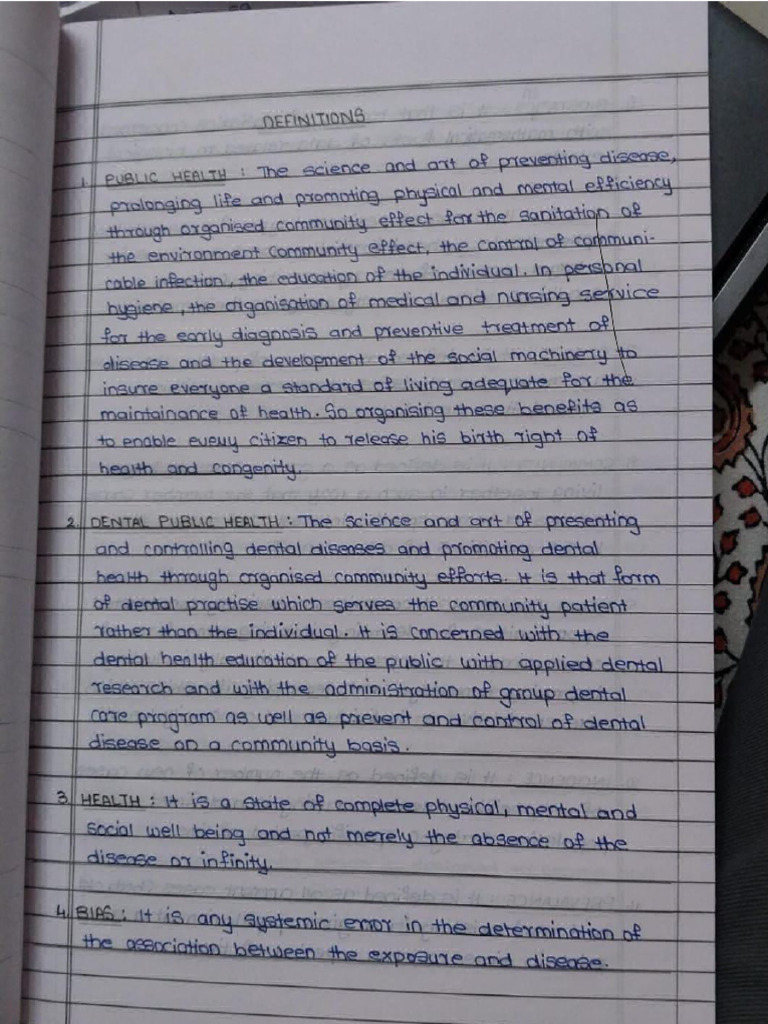 DEFINITIONS
1. PUBLIC HEALTH : The science and art of preventing disease,
prolonging life and promoting physical and mental efficiency
through organised community effect for the sanitation of
the environment community effect, the control of communi-
cable infection, the education of the individual. In personal
hygiene, the organisation of medical and nursing service
for the early diagnosis and preventive treatment of
disease and the development of the social machinery to
insure everyone a standard of living adequate for the
maintainance of health. So organising these benefits as
to enable every citizen to release his birth right of
health and congenity.
2. DENTAL PUBLIC HEALTH : The science and art of presenting
and controlling dental diseases and promoting dental
health through organised community efforts. It is that form
of dental practise which serves the community patient
rather than the individual. It is concerned with the
dental health education of the public with applied dental
research and with the administration of group dental
care program as well as prevent and control of dental
disease on a community basis.
3. HEALTH : It is a state of complete physical, mental and
social well being and not merely the absence of the
disease or infinity.
4. BIAS : It is any systemic error in the determination of
the association between the exposure and disease.